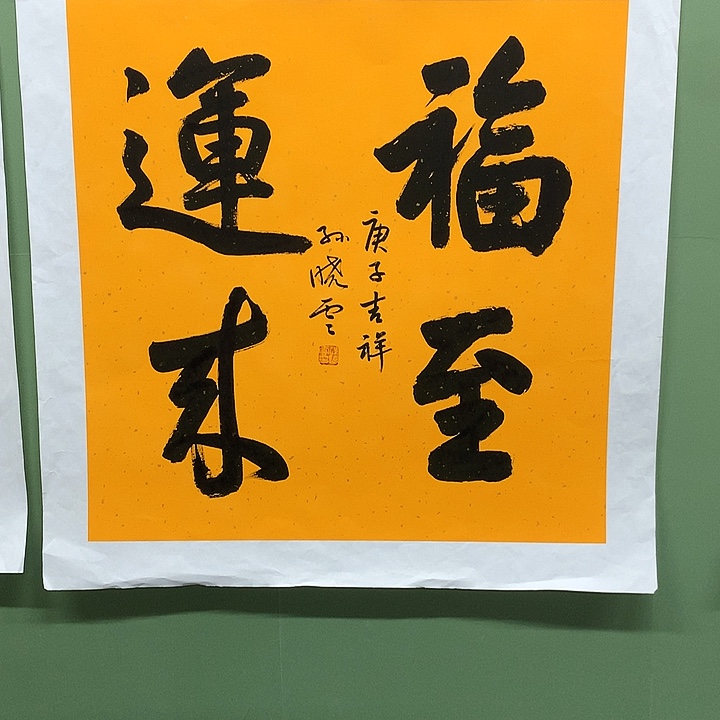 福至
運来
庚子吉祥
孙晓云